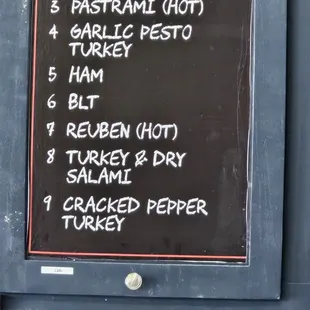 3 PASTRAMI (HOT)
4 GARLIC PESTO
TURKEY
5 HAM
6 BLT
7 REUBEN (HOT)
8 TURKEY & DRY
SALAMI
9 CRACKED PEPPER
TURKEY